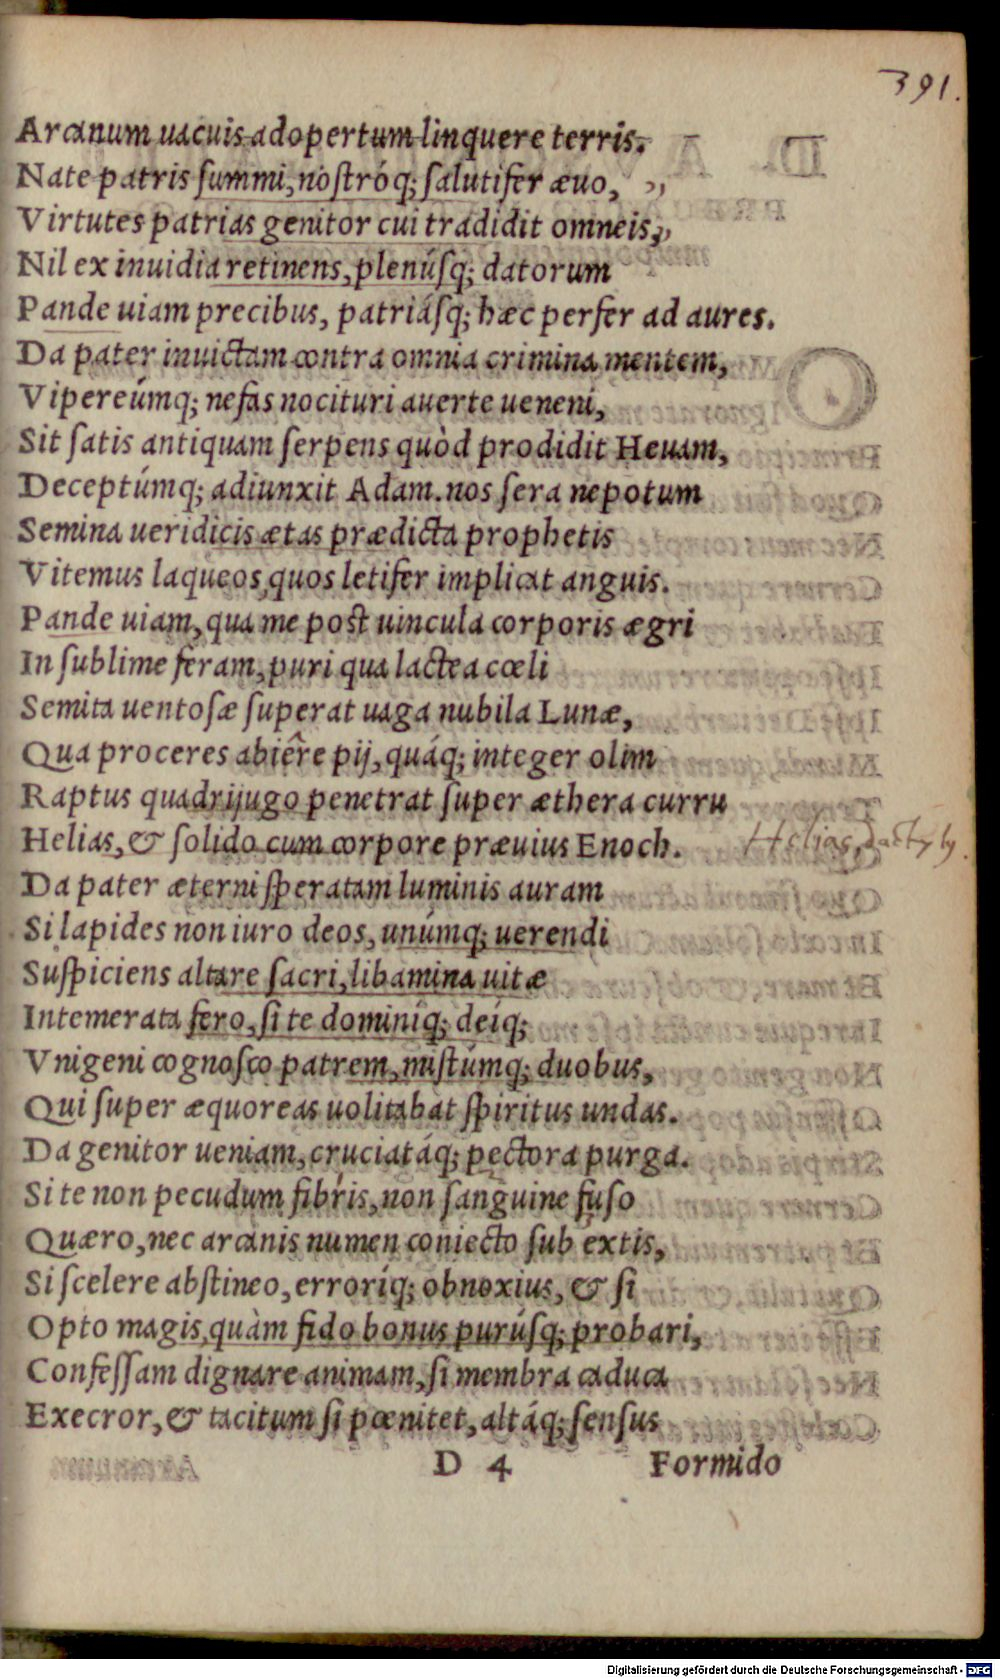 391.
Arcanum uacuis adopertum linquere terris.
Nate patris ſummi, noſtróq; ſalutifer æuo, ,,
Virtutes patrias genitor cui tradidit omneis,,,
Nil ex inuidia retinens, plenúſq; datorum
Pande uiam precibus, patriáſq; hæc perfer ad aures.
Da pater inuictam contra omnia crimina mentem,
Vipereúmq; nefas nocituri auerte ueneni,
Sit ſatis antiquam ſerpens quòd prodidit Heuam,
Deceptúmq; adiunxit Adam. nos ſera nepotum
Semina ueridicis ætas prædicta prophetis
Vitemus laqueos, quos letifer implicat anguis.
Pande uiam, qua me post uincula corporis ægri
In ſublime feram, puri qua lactea cœli
Semita uentoſæ ſuperat uaga nubila Lunæ,
Qua proceres abiêre pij, quáq; integer olim
Raptus quadrijugo penetrat ſuper æthera curru
Helias, & ſolido cum corpore præuius Enoch.
Helias dactyly.
Da pater æterni ſperatam luminis auram
Si lapides non iuro deos, unúmq; uerendi
Suſpiciens altare ſacri, libamina uitæ
Intemerata fero, ſi te dominíq; deíq;
Vnigeni cognoſco patrem, mistúmq; duobus,
Qui ſuper æquoreas uolitabat ſpiritus undas.
Da genitor ueniam, cruciatáq; pectora purga.
Si te non pecudum fibris, non ſanguine fuſo
Quæro, nec arcanis numen coniecto ſub extis,
Si ſcelere abſtineo, erroríq; obnoxius, & ſi
Opto magis, quàm fido bonus purúſq; probari,
Confeſſam dignare animam, ſi membra caduca
Execror, & tacitum ſi pœnitet, altáq; ſenſus
D 4 Formido
Digitalisierung gefördert durch die Deutsche Forschungsgemeinschaft - DFG